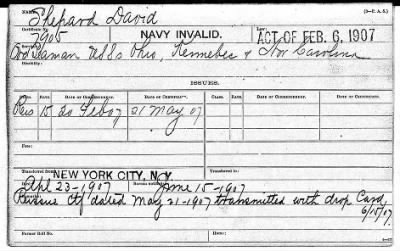 Name: Shepard David (3-D. P. A. S.)
Certificate No. 7905 NAVY INVALID. ACT OF FEB. 6, 1907
Service: Ord Seaman USSs Ohio, Kennebec & Nor Carolina
Disability:
ISSUES.
CLASS. RATE. DATE OF COMMENCEMENT. DATE OF CERTIFICATE. CLASS. RATE. DATE OF COMMENCEMENT. DATE OF CERTIFICATE.
Reis 15 20 Feb 07 21 May 07
From: From:
Transferred from NEW YORK CITY, N.Y. Transferred to:
Apl 23-1907 June 15-1907
Reissue Ctf dated May 21-1907 transmitted with drop Card,
6/15/07.
Former Roll No. Home: